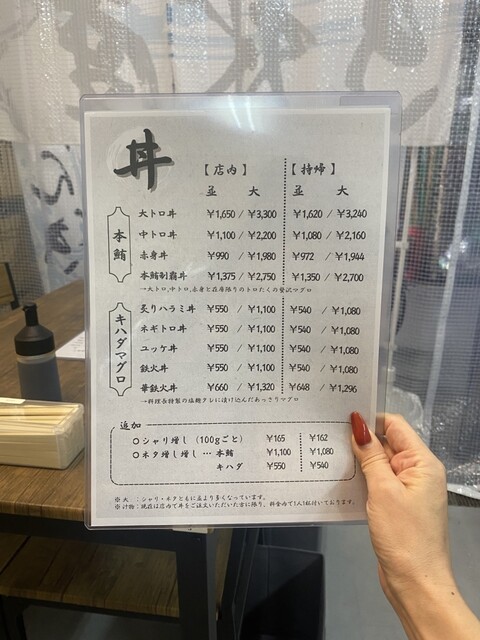 丼
【店内】 【持帰】
並 大 並 大
本鮪
大トロ丼 ¥1,650 / ¥3,300 ¥1,620 / ¥3,240
中トロ丼 ¥1,100 / ¥2,200 ¥1,080 / ¥2,160
赤身丼 ¥990 / ¥1,980 ¥972 / ¥1,944
本鮪制覇丼 ¥1,375 / ¥2,750 ¥1,350 / ¥2,700
→大トロ,中トロ,赤身と在庫限りのトロたくの贅沢マグロ
キハダマグロ
炙りハラミ丼 ¥550 / ¥1,100 ¥540 / ¥1,080
ネギトロ丼 ¥550 / ¥1,100 ¥540 / ¥1,080
ユッケ丼 ¥550 / ¥1,100 ¥540 / ¥1,080
鉄火丼 ¥550 / ¥1,100 ¥540 / ¥1,080
華鉄火丼 ¥660 / ¥1,320 ¥648 / ¥1,296
→料理長特製の塩麹タレに漬け込んだあっさりマグロ
追加
○シャリ増し（100gごと） ¥165 ¥162
○ネタ増し増し … 本鮪 ¥1,100 ¥1,080
キハダ ¥550 ¥540
※大 ：シャリ・ネタともに並より多くなっています。
※汁物：現在は店内で丼をご注文いただいた方に限り、料金内で1人1杯付いております。